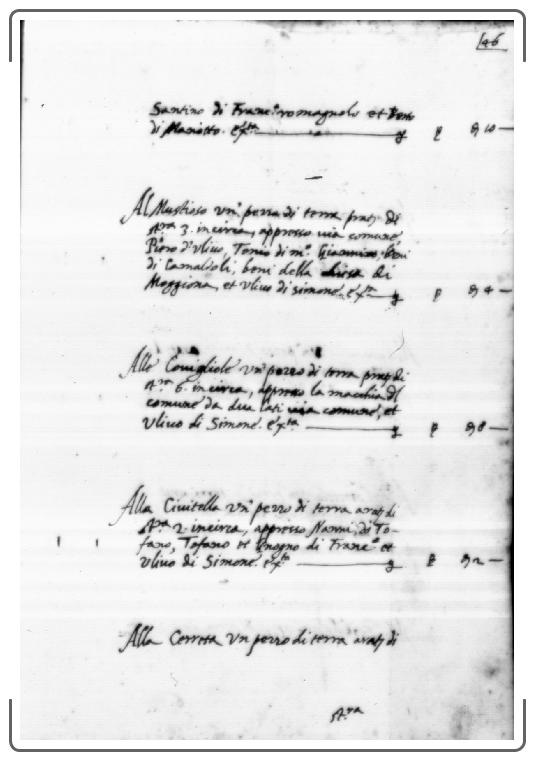 46
Santino di Franc.º romagnolo et
di Mariotto. &xta ₰ 10
Al Mustioso un pezzo di terra prat. di
st.ra 3. incirca, appresso via comune,
Piero d'Ulivo, Tonio di m.º Giannino, beni
di Camaldoli, beni della chiesa di
Moggiona, et Ulivo di Simone. &xta 4
Alle Covigliole un pezzo di terra prat. di
st.ra 6. incirca, appresso la macchia del
comune da dua lati via comune, et
Ulivo di Simone. &xta 8
Alla Civitella un pezzo di terra arat. di
st.ra 2 incirca, appresso Nanni di To-
fano, Tofano et di Franc.º et
Ulivo di Simone. &xta 2
Alla Cerreta un pezzo di terra arat. di
st.ra